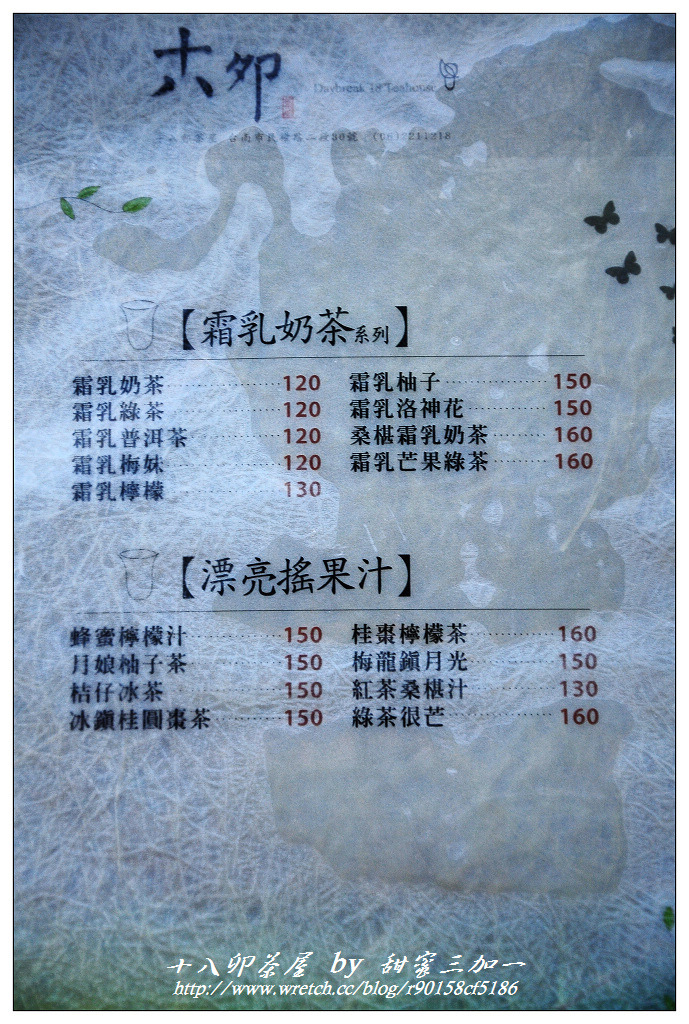 十八卯
Daybreak 18 Teahouse
十八卯茶屋 台南市民權路二段30號 (06)2211218
【霜乳奶茶系列】
霜乳奶茶 120
霜乳綠茶 120
霜乳普洱茶 120
霜乳梅妹 120
霜乳檸檬 130
霜乳柚子 150
霜乳洛神花 150
桑椹霜乳奶茶 160
霜乳芒果綠茶 160
【漂亮搖果汁】
蜂蜜檸檬汁 150
月娘柚子茶 150
桔仔冰茶 150
冰鎮桂圓棗茶 150
桂棗檸檬茶 160
梅龍鎮月光 150
紅茶桑椹汁 130
綠茶很芒 160
十八卯茶屋 by 甜蜜三加一
http://www.wretch.cc/blog/r90158cf5186